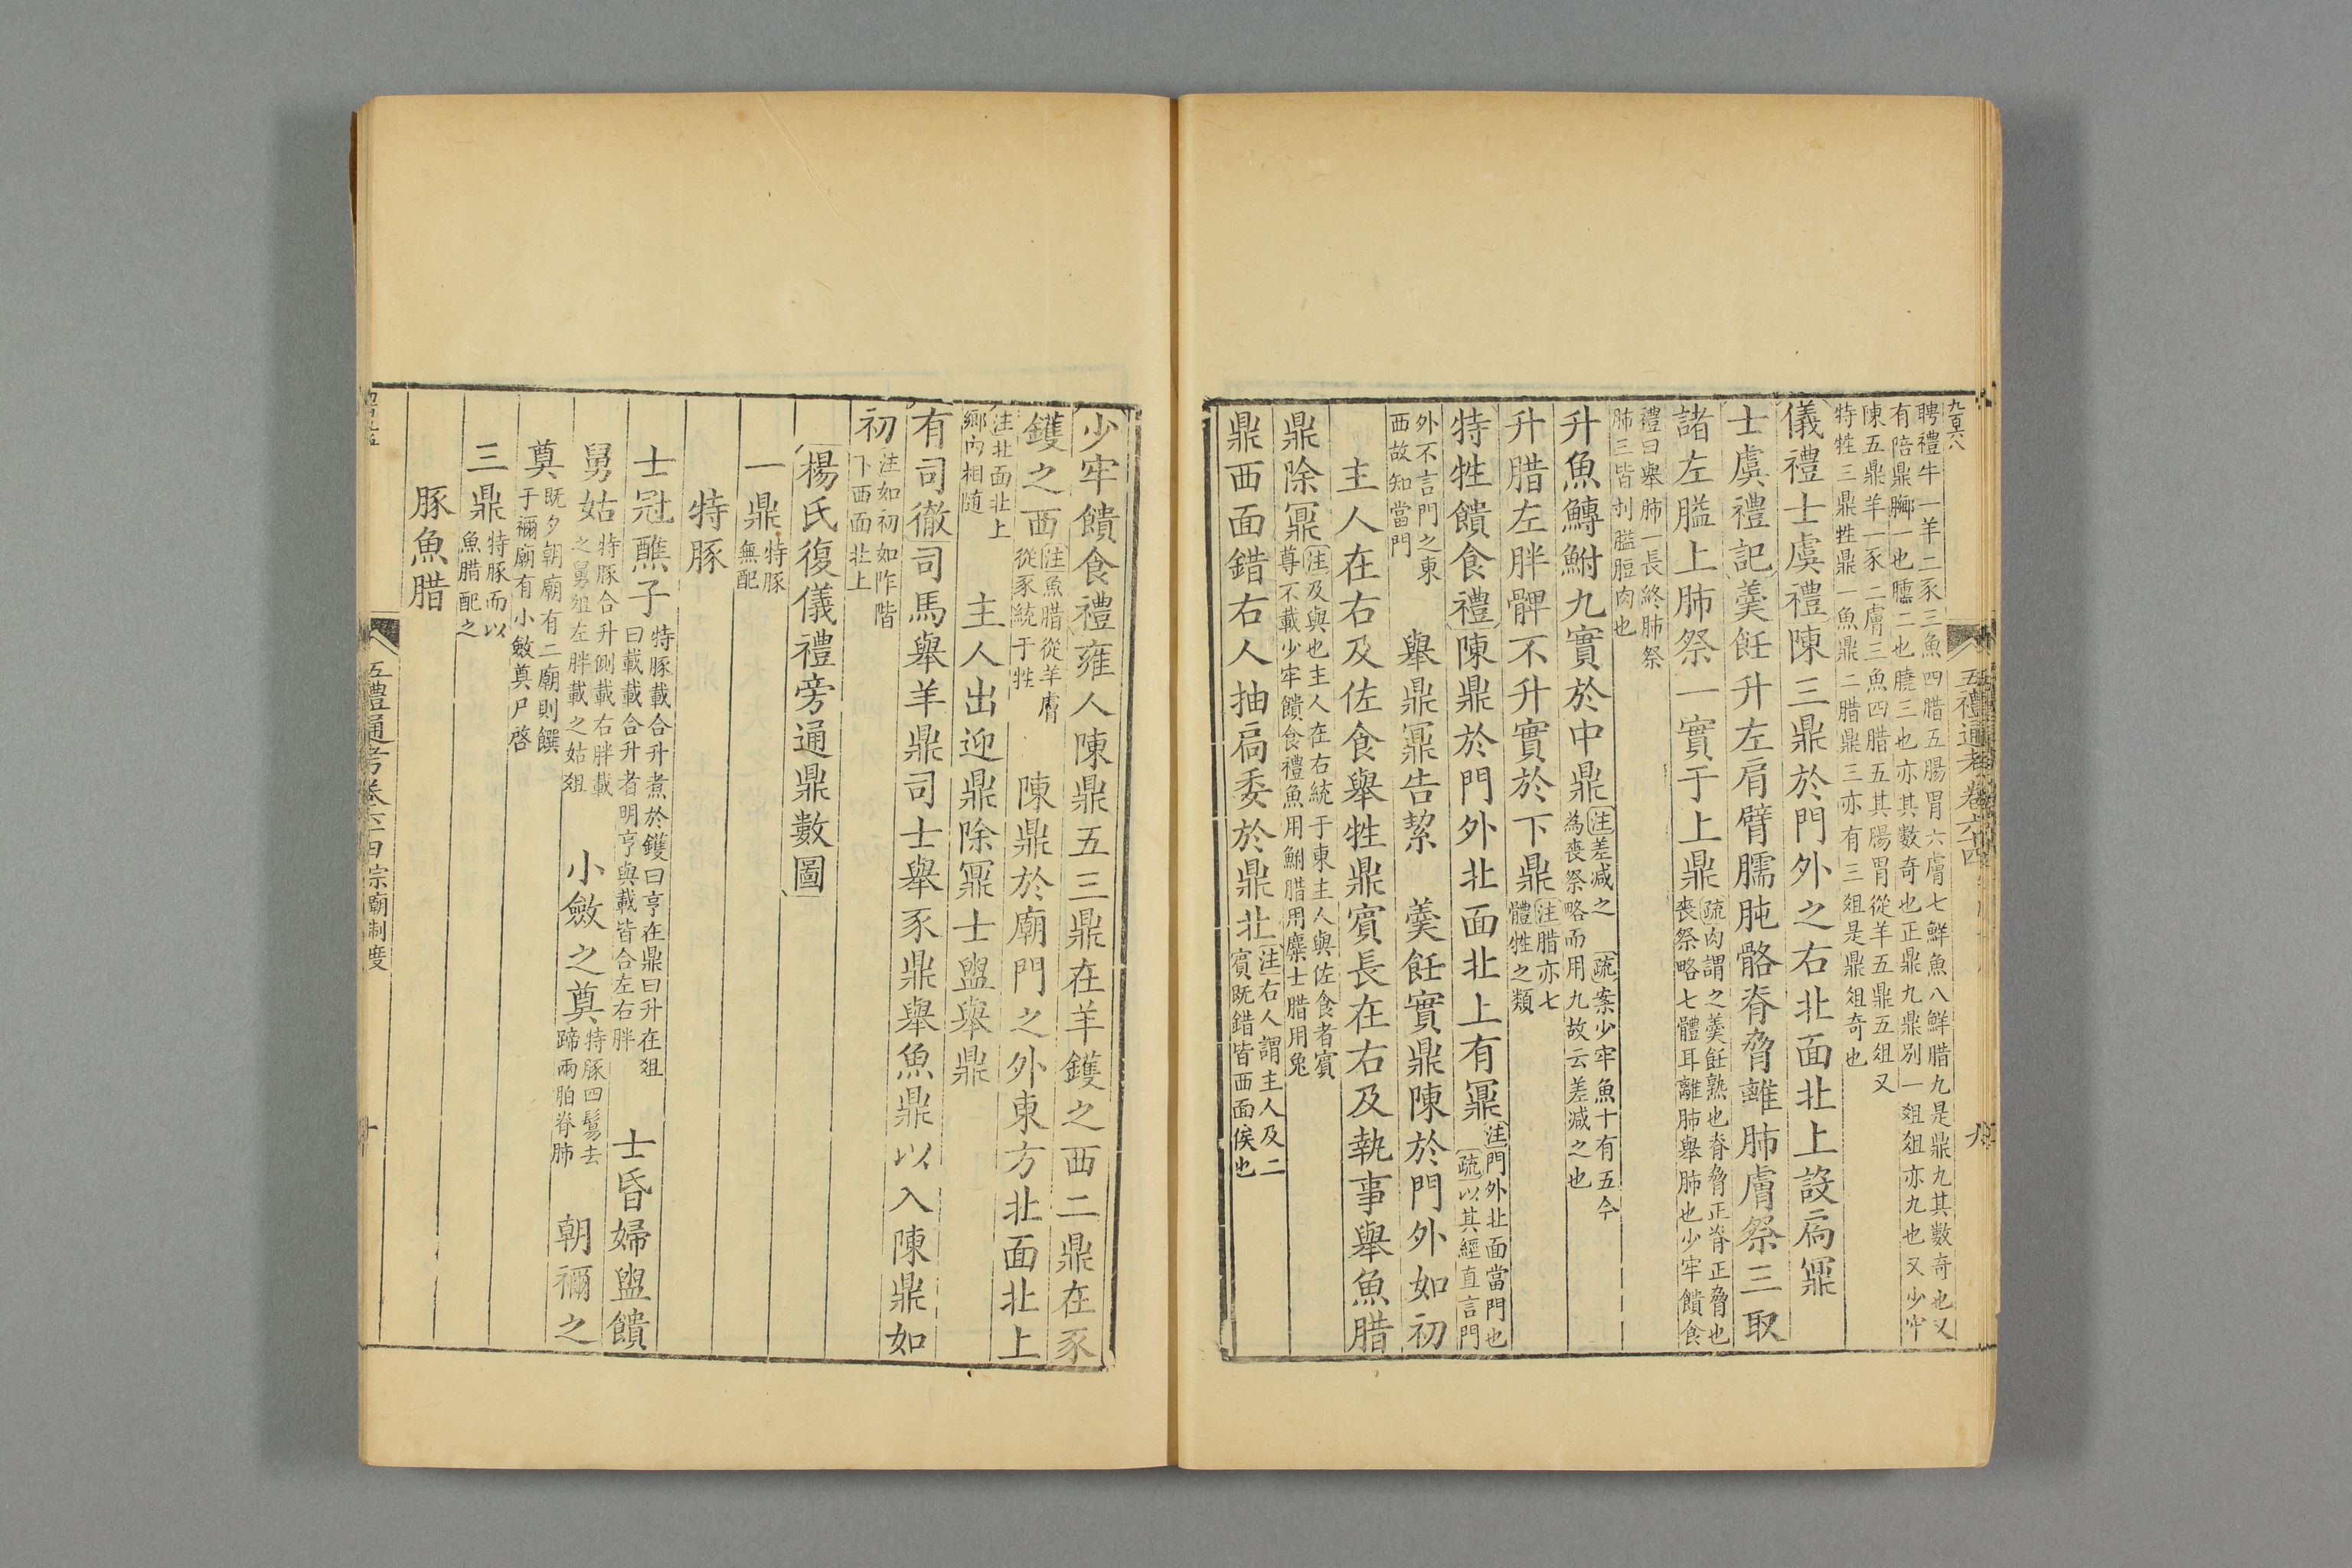 九百六八
五禮通考卷六十四
九
聘禮牛一羊二豕三魚四腊五腸胃六膚七鮮魚八鮮腊九是鼎九其數奇也又
有陪鼎膷一也臐二也膮三也亦其數奇也正鼎九鼎別一俎俎亦九也又少牢
陳五鼎羊一豕二膚三魚四腊五其腸胃從羊五鼎五俎又
特牲三鼎牲鼎一魚鼎二腊鼎三亦有三俎是鼎俎奇也
儀禮士虞禮陳三鼎於門外之右北面北上設扃鼏
士虞禮記羹飪升左肩臂臑肫骼脊脅離肺膚祭三取
諸左膉上肺祭一實于上鼎疏肉謂之羹飪熟也脊脅正脊正脅也
喪祭略七體耳離肺舉肺也少牢饋食
禮曰舉肺一長終肺祭
肺三皆刌膉脰肉也
升魚鱄鮒九實於中鼎注差減之
為喪祭略而用九故云差減之也
疏案少牢魚十有五今
升腊左胖髀不升實於下鼎注腊亦七
體牲之類
特牲饋食禮陳鼎於門外北面北上有鼏注門外北面當門也
疏以其經直言門
外不言門之東
西故知當門
舉鼎鼏告絜
羹飪實鼎陳於門外如初
主人在右及佐食舉牲鼎賓長在右及執事舉魚腊
鼎除鼏注及與也主人在右統于東主人與佐食者賓
尊不載少牢饋食禮魚用鮒腊用麋士腊用兔
鼎西面錯右人抽扃委於鼎北注右人謂主人及二
賓既錯皆西面俟也
少牢饋食禮雍人陳鼎五三鼎在羊鑊之西二鼎在豕
鑊之西注魚腊從羊膚
從豕統于牲
陳鼎於廟門之外東方北面北上
注北面北上
鄉內相隨
主人出迎鼎除鼏士盥舉鼎
有司徹司馬舉羊鼎司士舉豕鼎舉魚鼎以入陳鼎如
初注如初如阼階
下西面北上
楊氏復儀禮旁通鼎數圖
一鼎特豚
無配
特豚
士冠醮子特豚載合升煮於鑊曰亨在鼎曰升在俎
曰載載合升者明亨與載皆合左右胖
士昏婦盥饋
舅姑特豚合升側載右胖載
之舅俎左胖載之姑俎
小斂之奠特豚四鬄去
蹄兩胉脊肺
朝禰之
奠既夕朝廟有二廟則饌
于禰廟有小斂奠尸啓
三鼎特豚而以
魚腊配之
豚魚腊
五禮通考卷六十四宗廟制度
十